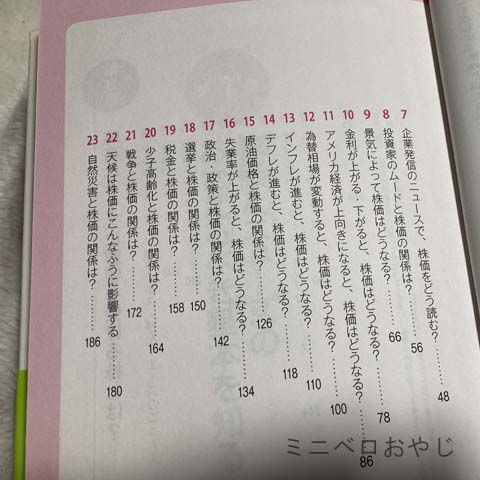 7 企業発信のニュースで、株価をどう読む？………48
8 投資家のムードと株価の関係は？………56
9 景気によって株価はどうなる？………66
10 金利が上がる・下がると、株価はどうなる？………78
11 アメリカ経済が上向きになると、株価はどうなる？………86
12 為替相場が変動すると、株価はどうなる？………100
13 インフレが進むと、株価はどうなる？………110
14 デフレが進むと、株価はどうなる？………118
15 原油価格と株価の関係は？………126
16 失業率が上がると、株価はどうなる？………134
17 政治・政策と株価の関係は？………142
18 選挙と株価の関係は？………150
19 税金と株価の関係は？………158
20 少子高齢化と株価の関係は？………164
21 戦争と株価の関係は？………172
22 天候は株価にこんなふうに影響する………180
23 自然災害と株価の関係は？………186
ミニベロおやじ